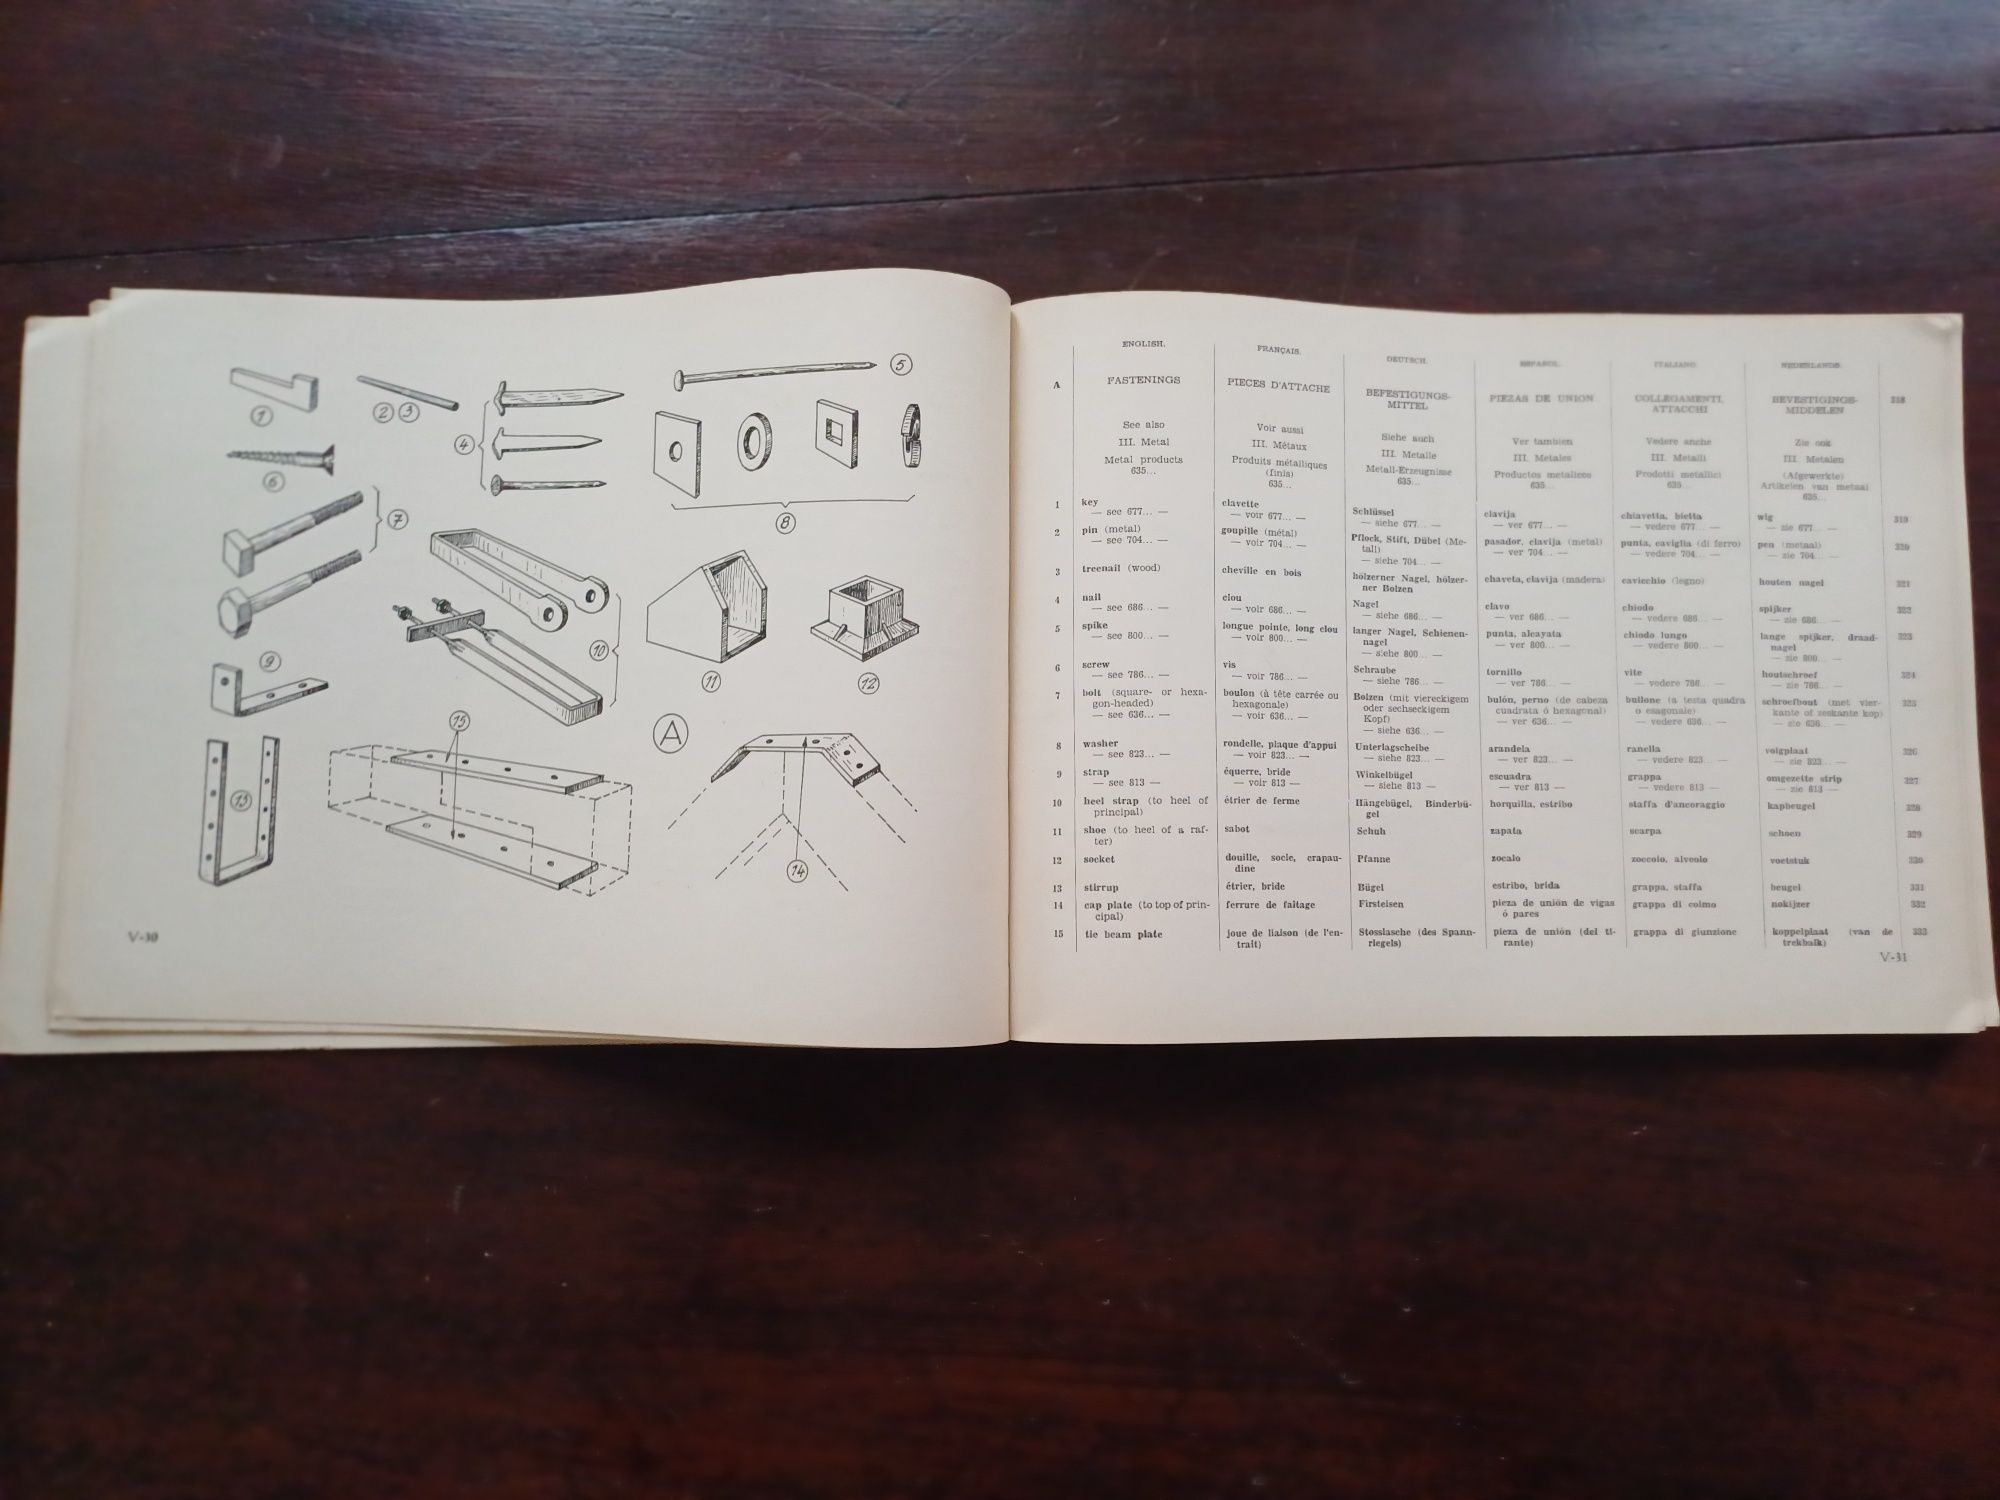 1
2
3
4
5
6
7
8
9
10
11
12
13
14
15
A
V-30
ENGLISH. FRANÇAIS. DEUTSCH. ESPAÑOL. ITALIANO. NEDERLANDS.
A FASTENINGS PIECES D'ATTACHE BEFESTIGUNGS- PIEZAS DE UNION COLLEGAMENTI, BEVESTIGINGS- 318
MITTEL ATTACCHI MIDDELEN
See also Voir aussi Siehe auch Ver tambien Vedere anche Zie ook
III. Metal III. Métaux III. Metalle III. Metales III. Metalli III. Metalen
Metal products Produits métalliques Metall-Erzeugnisse Productos metalicos Prodotti metallici (Afgewerkte)
635... (finis) 635... 635... 635... Artikelen van metaal
635... 635...
1 key clavette Schlüssel clavija chiavetta, bietta wig 319
— see 677... — — voir 677... — — siehe 677... — — ver 677... — — vedere 677... — — zie 677... —
2 pin (metal) goupille (métal) Pflock, Stift, Dübel (Me- pasador, clavija (metal) punta, caviglia (di ferro) pen (metaal) 320
— see 704... — — voir 704... — tall) — ver 704... — — vedere 704... — — zie 704... —
— siehe 704... —
3 treenail (wood) cheville en bois hölzerner Nagel, hölzer- chaveta, clavija (madera) cavicchio (legno) houten nagel 321
ner Bolzen
4 nail clou Nagel clavo chiodo spijker 322
— see 686... — — voir 686... — — siehe 686... — — ver 686... — — vedere 686... — — zie 686... —
5 spike longue pointe, long clou langer Nagel, Schienen- punta, alcayata chiodo lungo lange spijker, draad- 323
— see 800... — — voir 800... — nagel — ver 800... — — vedere 800... — nagel
— siehe 800... — — zie 800... —
6 screw vis Schraube tornillo vite houtschroef 324
— see 786... — — voir 786... — — siehe 786... — — ver 786... — — vedere 786... — — zie 786... —
7 bolt (square- or hexa- boulon (à tête carrée ou Bolzen (mit viereckigem bulón, perno (de cabeza bullone (a testa quadra schroefbout (met vier- 325
gon-headed) hexagonale) oder sechseckigem cuadrata ó hexagonal) o esagonale) kante of zeskante kop)
— see 636... — — voir 636... — Kopf) — ver 636... — — vedere 636... — — zie 636... —
— siehe 636... —
8 washer rondelle, plaque d'appui Unterlagscheibe arandela ranella volgplaat 326
— see 823... — — voir 823... — — siehe 823... — — ver 823... — — vedere 823... — — zie 823... —
9 strap équerre, bride Winkelbügel escuadra grappa omgezette strip 327
— see 813 — — voir 813 — — siehe 813 — — ver 813 — — vedere 813 — — zie 813 —
10 heel strap (to heel of étrier de ferme Hängebügel, Binderbü- horquilla, estribo staffa d'ancoraggio kapbeugel 328
principal) gel
11 shoe (to heel of a raf- sabot Schuh zapata scarpa schoen 329
ter)
12 socket douille, socle, crapau- Pfanne zocalo zoccolo, alveolo voetstuk 330
dine
13 stirrup étrier, bride Bügel estribo, brida grappa, staffa beugel 331
14 cap plate (to top of prin- ferrure de faîtage Firsteisen pieza de unión de vigas grappa di colmo nokijzer 332
cipal) ó pares
15 tie beam plate joue de liaison (de l'en- Stosslasche (des Spann- pieza de unión (del ti- grappa di giunzione koppelplaat (van de 333
trait) riegels) rante) trekbalk)
V-31